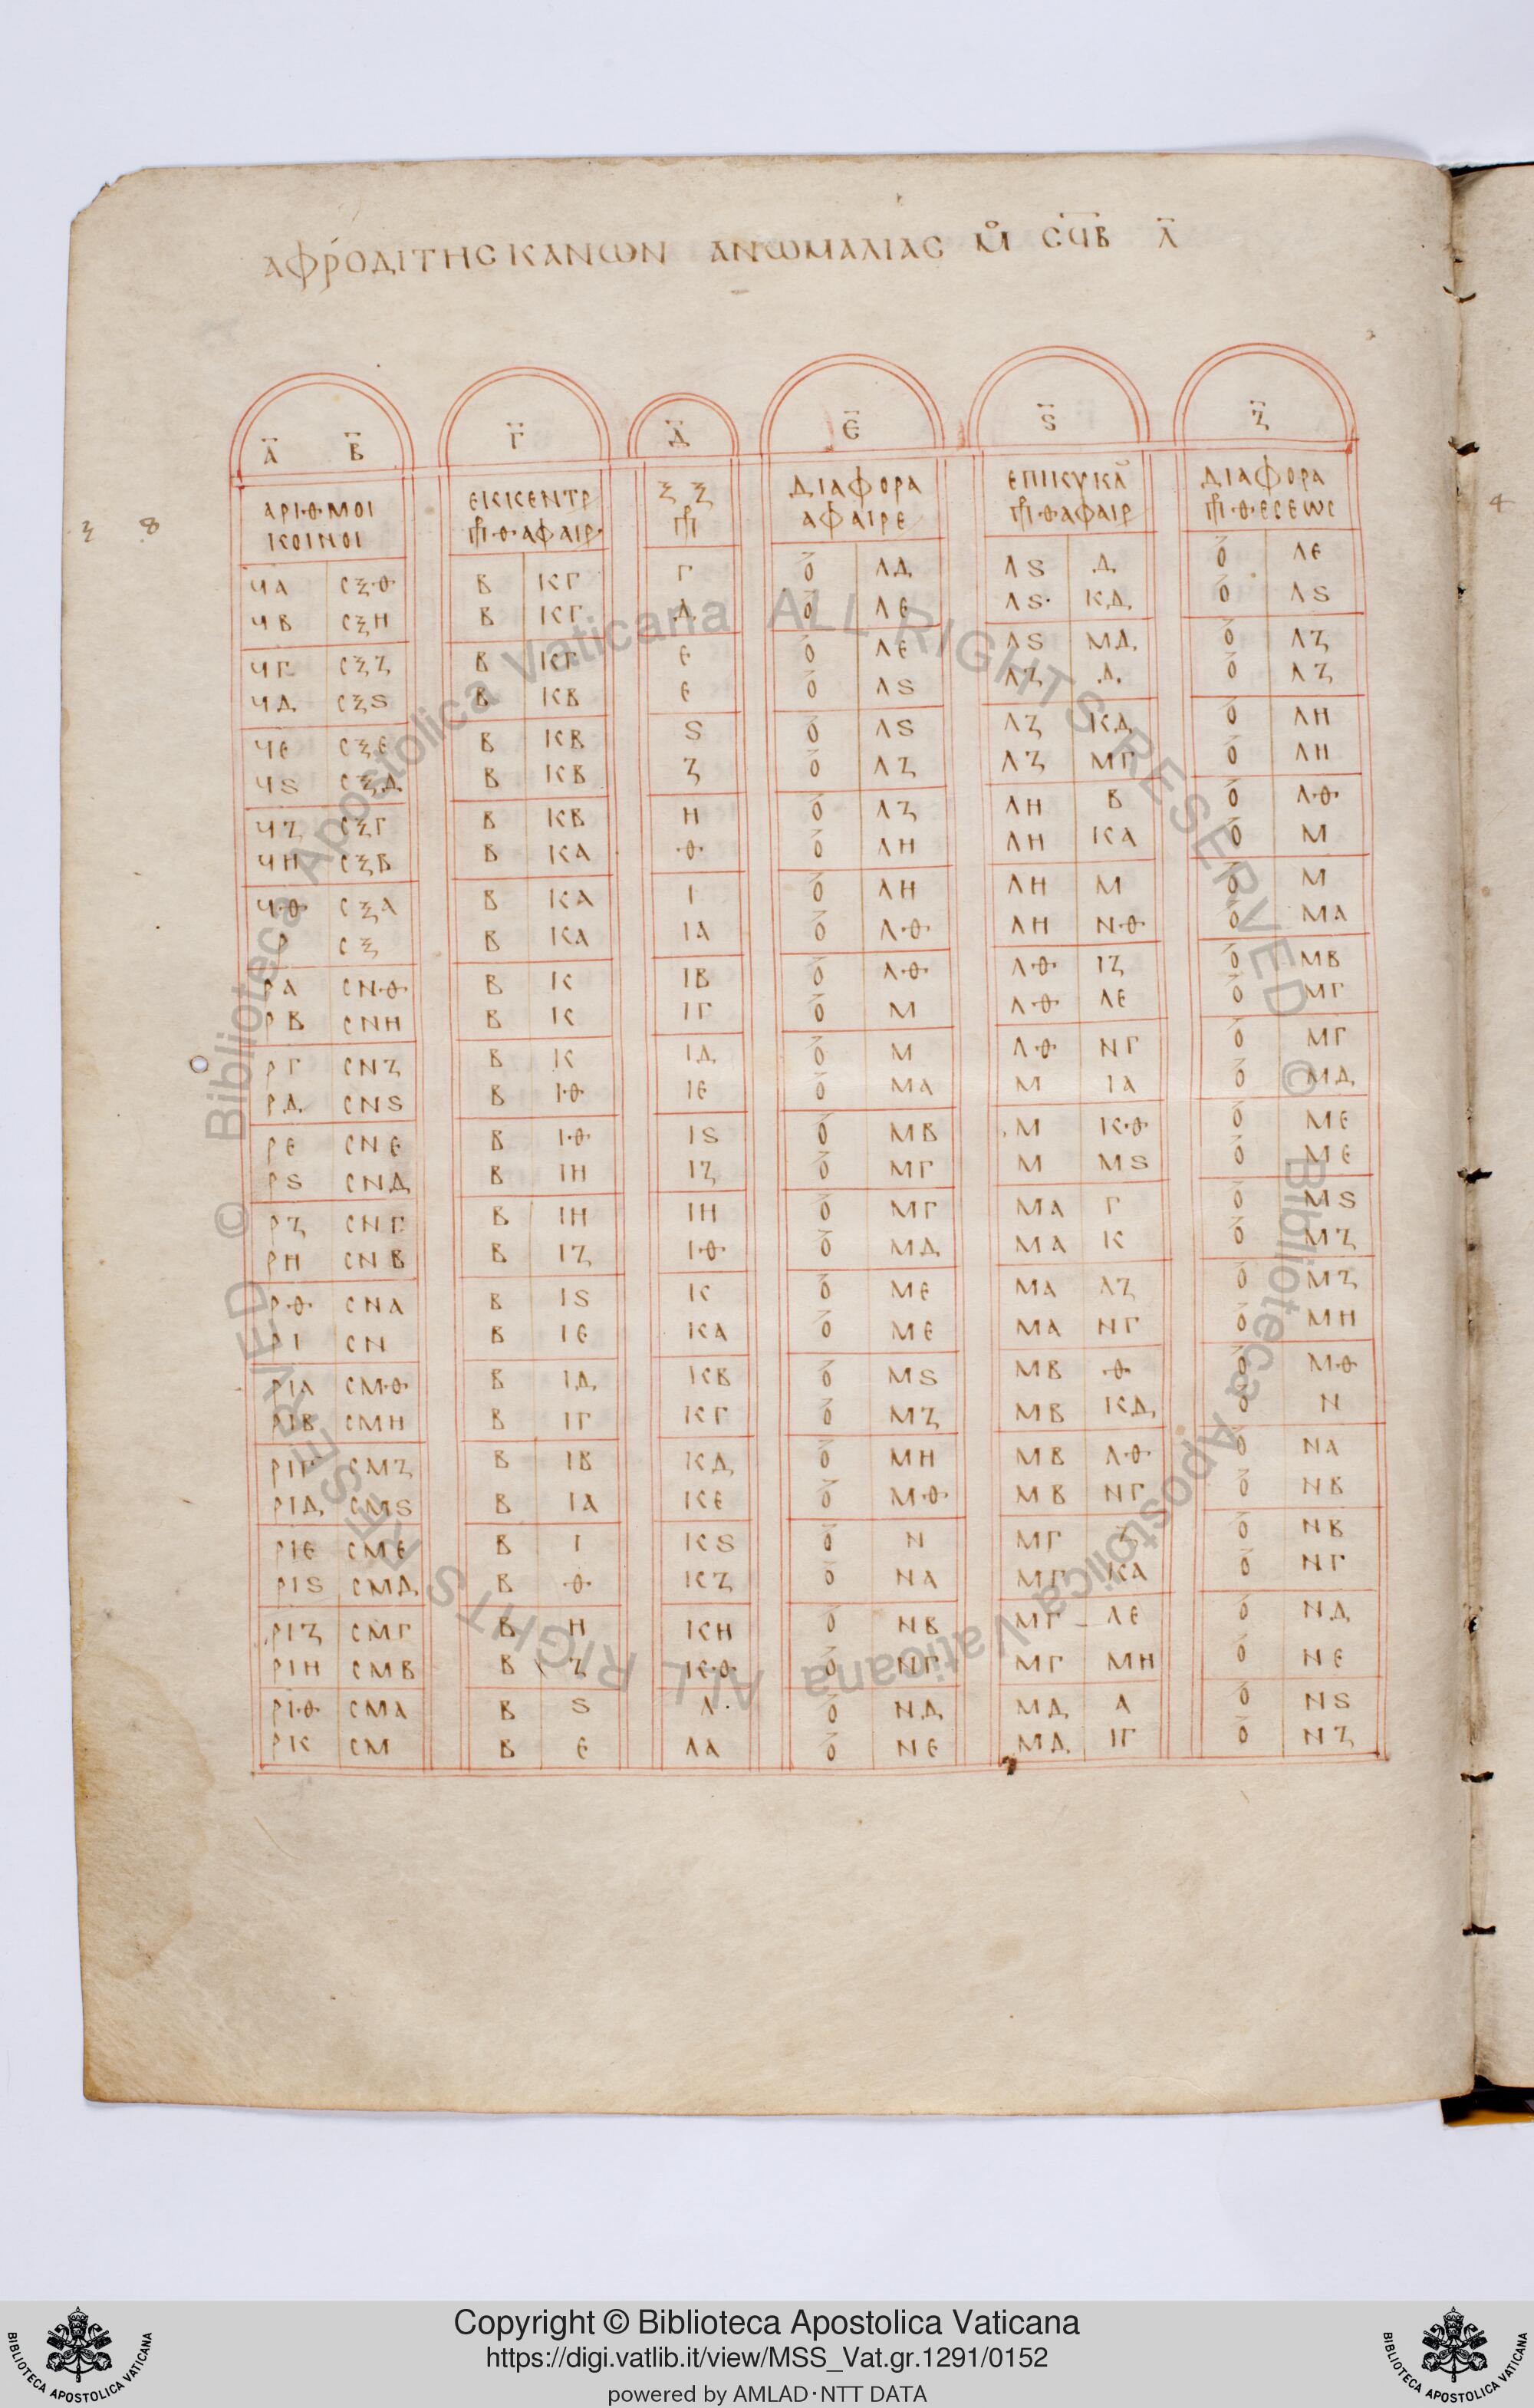 ΑΦΡΟΔΙΤΗϹ ΚΑΝΩΝ ΑΝΩΜΑΛΙΑϹ Μο ϹϞΒ Λ
Α Β Γ Δ Ε Ϛ Ζ
ΑΡΙΘΜΟΙ ΕΚΚΕΝΤΡ Ξ Ξ ΔΙΑΦΟΡΑ ΕΠΙΚΥΚΛ ΔΙΑΦΟΡΑ
ΚΟΙΝΟΙ ΠΡΘΑΦΑΙΡ ΑΦΑΙΡΕ ΠΡΘΑΦΑΙΡ ΠΡΘΕϹΕΩϹ
ϞΑ ϹΞΘ Β ΚΓ Γ Ο ΛΔ ΛϚ Δ Ο ΛΕ
ϞΒ ϹΞΗ Β ΚΓ Δ Ο ΛΕ ΛϚ ΚΔ Ο ΛϚ
ϞΓ ϹΞΖ Β ΚΓ Ε Ο ΛΕ ΛϚ ΜΔ Ο ΛΖ
ϞΔ ϹΞϚ Β ΚΒ Ε Ο ΛϚ ΛΖ Δ Ο ΛΖ
ϞΕ ϹΞΕ Β ΚΒ Ϛ Ο ΛϚ ΛΖ ΚΔ Ο ΛΗ
ϞϚ ϹΞΔ Β ΚΒ Ζ Ο ΛΖ ΛΖ ΜΓ Ο ΛΗ
ϞΖ ϹΞΓ Β ΚΒ Η Ο ΛΖ ΛΗ Β Ο ΛΘ
ϞΗ ϹΞΒ Β ΚΑ Θ Ο ΛΗ ΛΗ ΚΑ Ο Μ
ϞΘ ϹΞΑ Β ΚΑ Ι Ο ΛΗ ΛΗ Μ Ο Μ
Ρ ϹΞ Β ΚΑ ΙΑ Ο ΛΘ ΛΗ ΝΘ Ο ΜΑ
ΡΑ ϹΝΘ Β Κ ΙΒ Ο ΛΘ ΛΘ ΙΖ Ο ΜΒ
ΡΒ ϹΝΗ Β Κ ΙΓ Ο Μ ΛΘ ΛΕ Ο ΜΓ
ΡΓ ϹΝΖ Β Κ ΙΔ Ο Μ ΛΘ ΝΓ Ο ΜΓ
ΡΔ ϹΝϚ Β ΙΘ ΙΕ Ο ΜΑ Μ ΙΑ Ο ΜΔ
ΡΕ ϹΝΕ Β ΙΘ ΙϚ Ο ΜΒ Μ ΚΘ Ο ΜΕ
ΡϚ ϹΝΔ Β ΙΗ ΙΖ Ο ΜΓ Μ ΜϚ Ο ΜΕ
ΡΖ ϹΝΓ Β ΙΗ ΙΗ Ο ΜΓ ΜΑ Γ Ο ΜϚ
ΡΗ ϹΝΒ Β ΙΖ ΙΘ Ο ΜΔ ΜΑ Κ Ο ΜΖ
ΡΘ ϹΝΑ Β ΙϚ Κ Ο ΜΕ ΜΑ ΛΖ Ο ΜΖ
ΡΙ ϹΝ Β ΙΕ ΚΑ Ο ΜΕ ΜΑ ΝΓ Ο ΜΗ
ΡΙΑ ϹΜΘ Β ΙΔ ΚΒ Ο ΜϚ ΜΒ Θ Ο ΜΘ
ΡΙΒ ϹΜΗ Β ΙΓ ΚΓ Ο ΜΖ ΜΒ ΚΔ Ο Ν
ΡΙΓ ϹΜΖ Β ΙΒ ΚΔ Ο ΜΗ ΜΒ ΛΘ Ο ΝΑ
ΡΙΔ ϹΜϚ Β ΙΑ ΚΕ Ο ΜΘ ΜΒ ΝΓ Ο ΝΒ
ΡΙΕ ϹΜΕ Β Ι ΚϚ Ο Ν ΜΓ Ο ΝΒ
ΡΙϚ ϹΜΔ Β Θ ΚΖ Ο ΝΑ ΜΓ ΚΑ Ο ΝΓ
ΡΙΖ ϹΜΓ Β Η ΚΗ Ο ΝΒ ΜΓ ΛΕ Ο ΝΔ
ΡΙΗ ϹΜΒ Β Ζ ΚΘ Ο ΝΓ ΜΓ ΜΗ Ο ΝΕ
ΡΙΘ ϹΜΑ Β Ϛ Λ Ο ΝΔ ΜΔ Α Ο ΝϚ
ΡΚ ϹΜ Β Ε ΛΑ Ο ΝΕ ΜΔ ΙΓ Ο ΝΖ
© Biblioteca Apostolica Vaticana ALL RIGHTS RESERVED © Biblioteca Apostolica Vaticana ALL RIGHTS RESERVED
Copyright © Biblioteca Apostolica Vaticana
https://digi.vatlib.it/view/MSS_Vat.gr.1291/0152
powered by AMLAD·NTT DATA
BIBLIOTECA APOSTOLICA VATICANA
BIBLIOTECA APOSTOLICA VATICANA